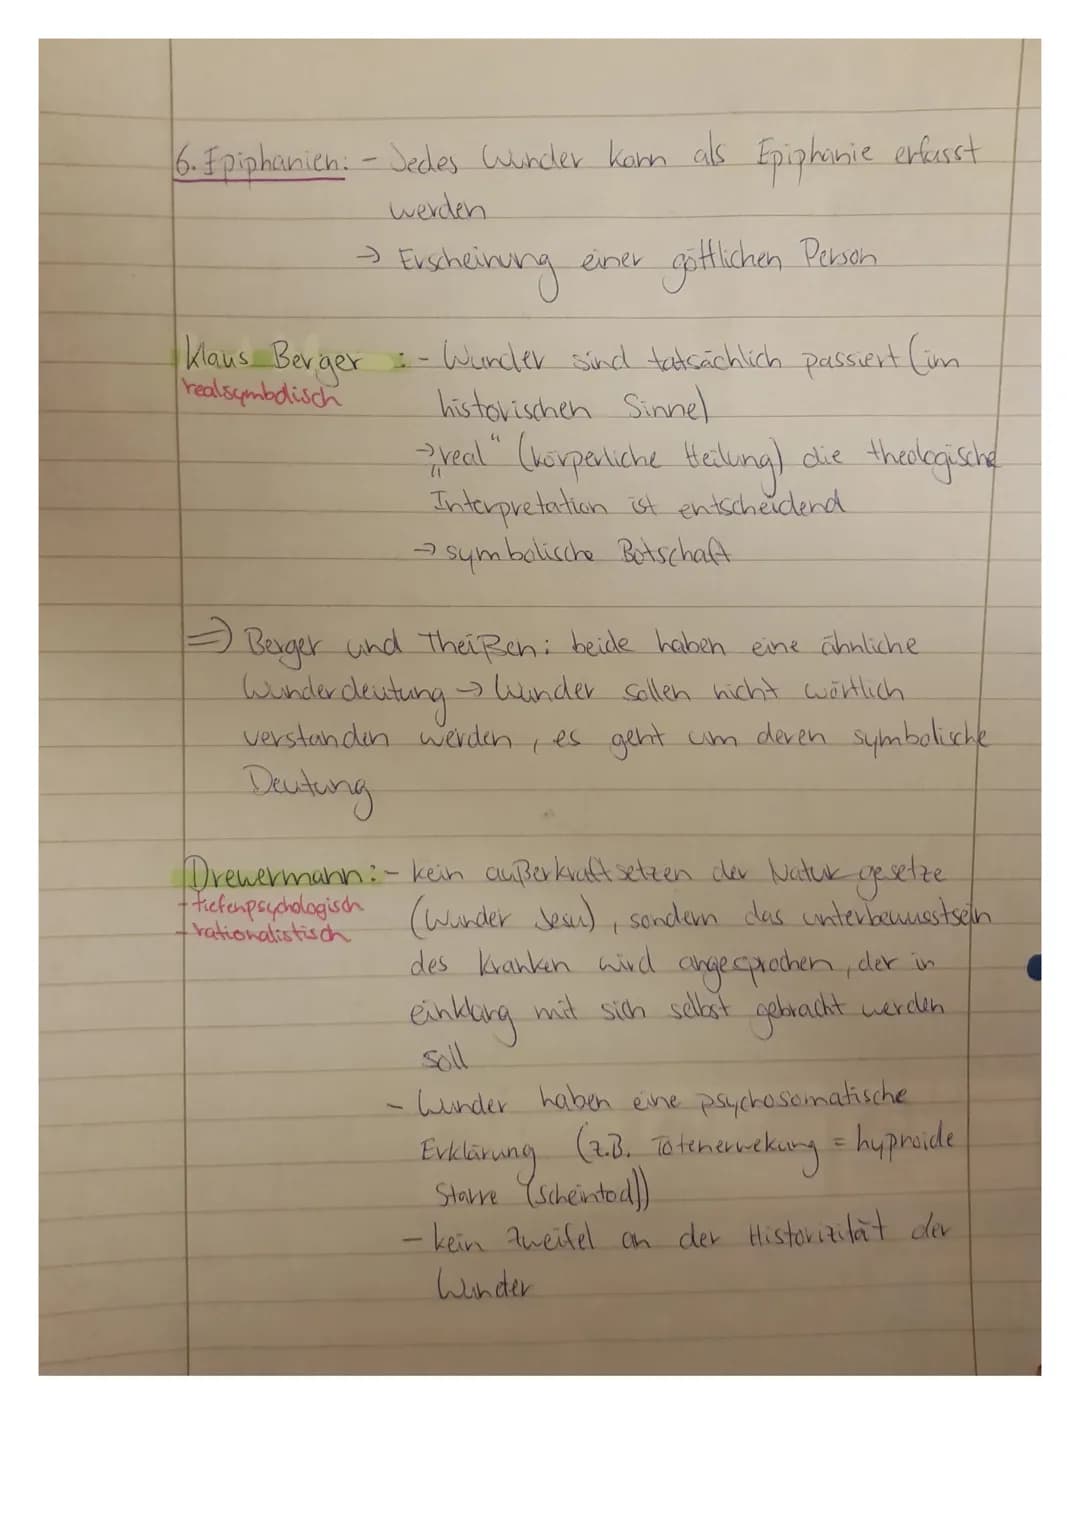 6. Epiphanien: - Jedes Wunder kann als Epiphanie erfasst
werden
→ Erscheinung einer göttlichen Person
Klaus Berger : - Wunder sind tatsächlich passiert (im
realsymbolisch
historischen Sinne)
→ „real“ (körperliche Heilung) die theologische
Interpretation ist entscheidend
→ symbolische Botschaft
⇒ Berger und Theißen: beide haben eine ähnliche
Wunderdeutung → Wunder sollen nicht wörtlich
verstanden werden, es geht um deren symbolische
Deutung
Drewermann: - kein außerkraftsetzen der Naturgesetze
- tiefenpsychologisch
(Wunder Jesu), sondern das unterbewusstsein
- rationalistisch
des Kranken wird angesprochen, der in
einklang mit sich selbst gebracht werden
soll
- Wunder haben eine psychosomatische
Erklärung (z.B. Totenerwekung = hypnoide
Starre (Scheintod))
- kein Zweifel an der Historizität der
Wunder